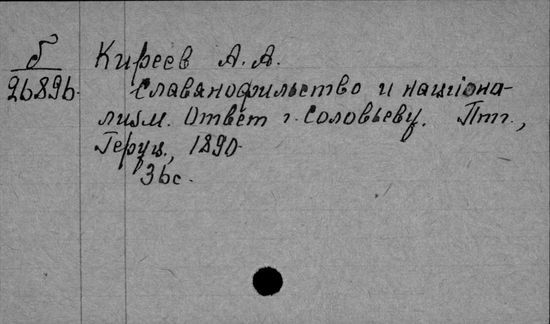 б Киреев А. А.
26896. Славянофильство и націона-
лизм. Ответ г. Соловьеву. Птг.,
Геруц., 1890.
36с.